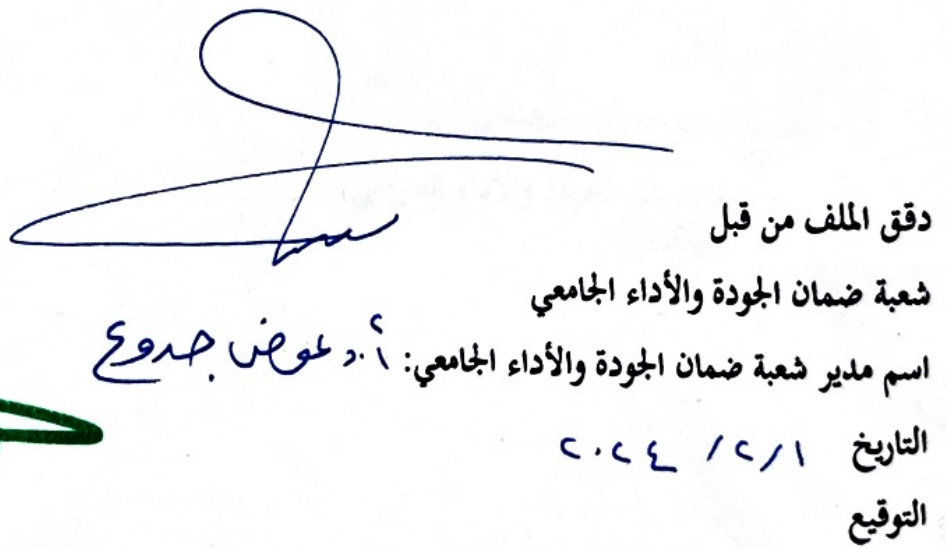 دقق الملف من قبل
شعبة ضمان الجودة والأداء الجامعي
اسم مدير شعبة ضمان الجودة والأداء الجامعي: أ.د عوض جدوع
التاريخ ١ /٢ /٢٠٢٤
التوقيع